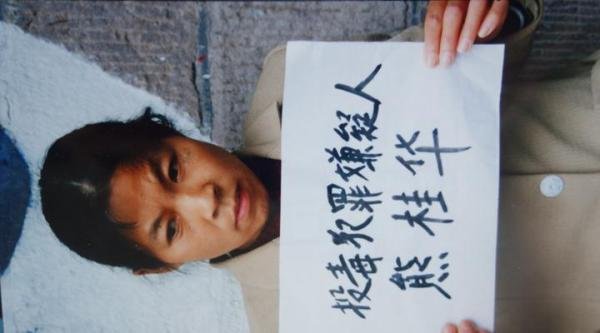 投毒犯罪嫌疑人
熊桂华